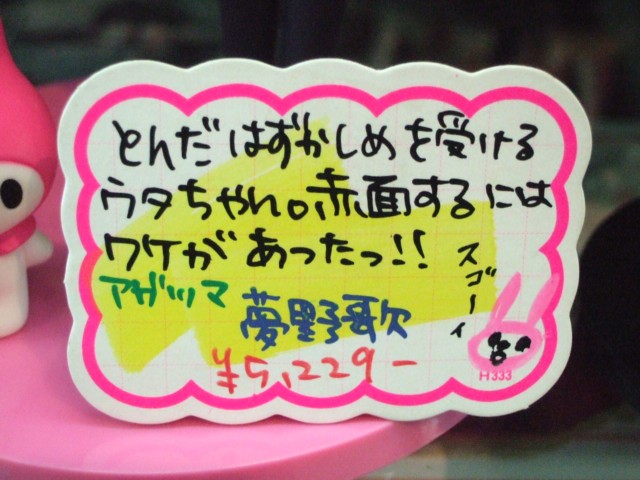 とんだはずかしめを受ける
ウタちゃん。赤面するには
ワケがあったっ!!
スゴーイ
アガツマ
夢野歌
¥5,229-
H333